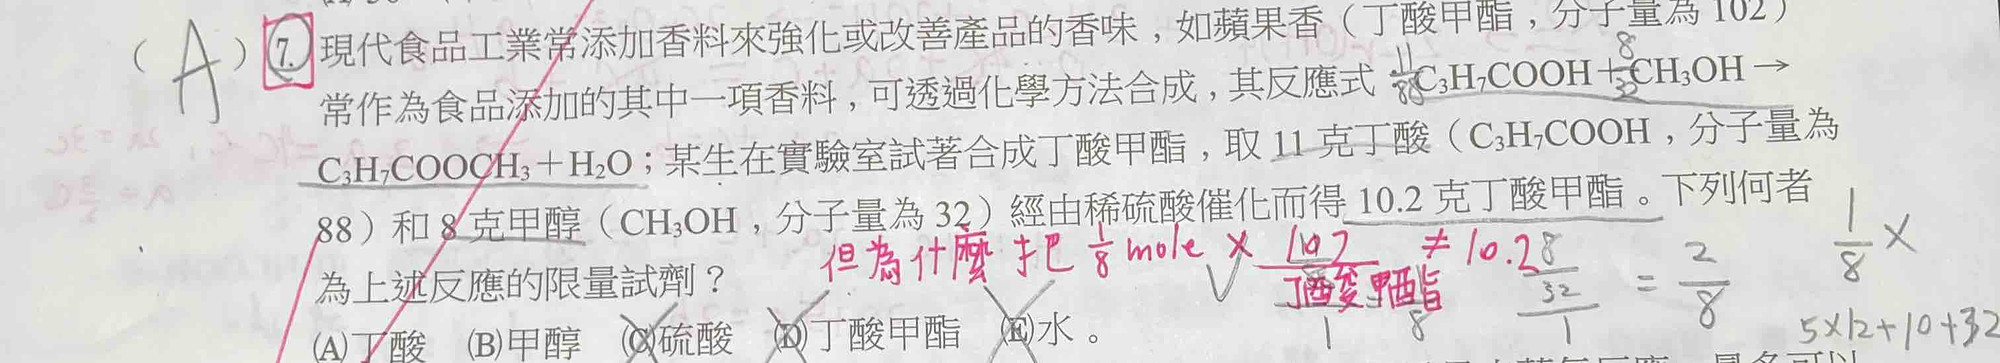 (A) 7. 現代食品工業常添加香料來強化或改善產品的香味，如蘋果香（丁酸甲酯，分子量為 102）
常作為食品添加的其中一項香料，可透過化學方法合成，其反應式 C₃H₇COOH＋CH₃OH→
11/88 8/32
C₃H₇COOCH₃＋H₂O；某生在實驗室試著合成丁酸甲酯，取 11 克丁酸（C₃H₇COOH，分子量為
88）和 8 克甲醇（CH₃OH，分子量為 32）經由稀硫酸催化而得 10.2 克丁酸甲酯。下列何者
為上述反應的限量試劑？
但為什麼把 1/8 mole × 102 ≠ 10.2
丁酸甲酯
8/32
1
= 2/8
1/8 ×
1 8
5×12+10+32
(A)丁酸 (B)甲醇 (C)硫酸 (D)丁酸甲酯 (E)水。